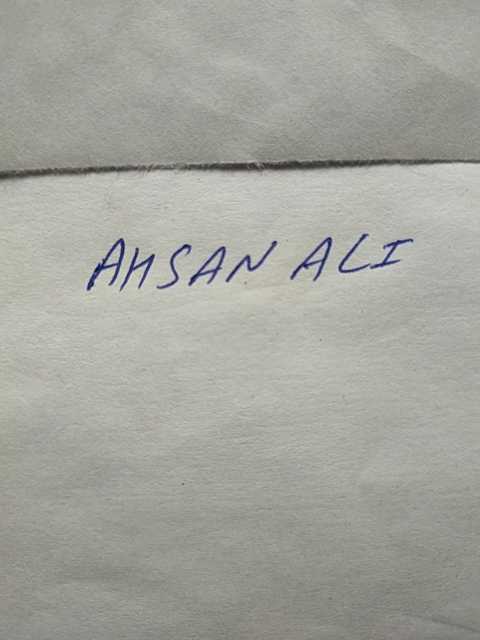 AHSAN ALI